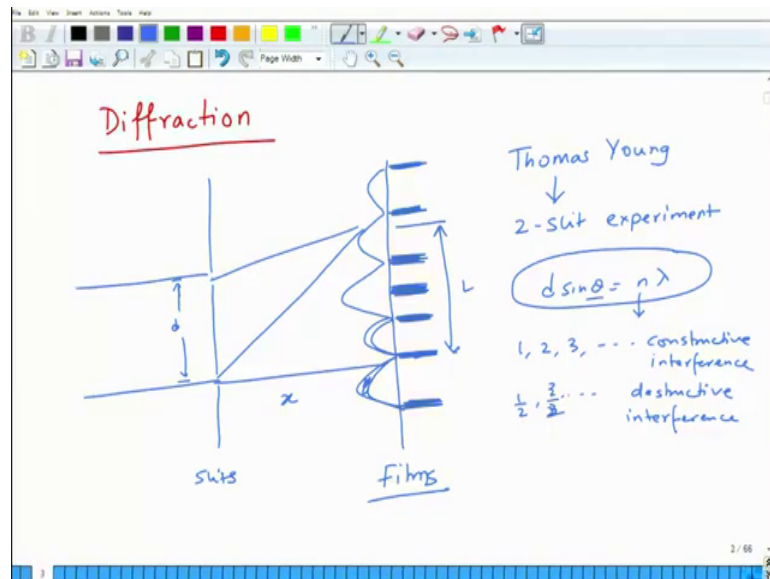 File Edit View Insert Actions Tools Help
B I
Page Width
Diffraction
Thomas Young
2-slit experiment
d sinθ = nλ
1, 2, 3, --- constructive
interference
1/2, 3/2, --- destructive
interference
d
L
x
slits
films
2 / 66
3